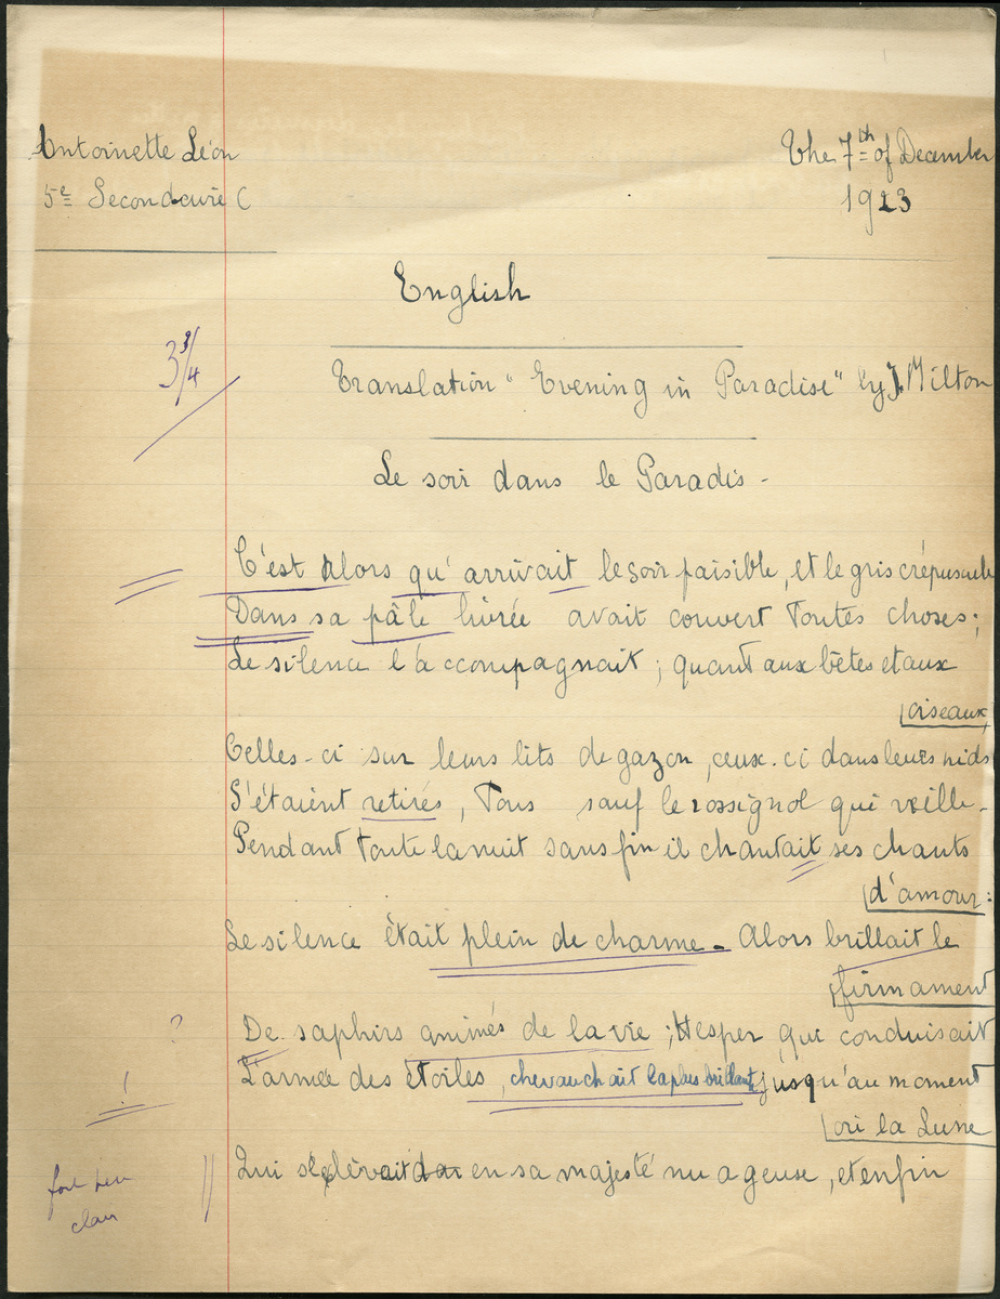 Antoinette Léon
The 7th of December
5e Secondaire C
1923
English
3 3/4
Translation "Evening in Paradise" by J. Milton
Le soir dans le Paradis -
C'est Alors qu'arrivait le soir paisible, et le gris crépuscule
Dans sa pâle livrée avait couvert Toutes choses;
Le silence l'accompagnait; quant aux bêtes et aux
oiseaux,
Celles-ci sur leurs lits de gazon, ceux-ci dans leurs nids
S'étaient retirés, Tous sauf le rossignol qui veille.
Pendant toute la nuit sans fin il chantait ses chants
d'amour:
Le silence était plein de charme. Alors brillait le
firmament
? De saphirs animés de la vie; Hesper qui conduisait
! L'armée des étoiles, chevauchait la plus brillante, jusqu'au moment
où la Lune
Qui s'élevait en sa majesté nuageuse, et enfin
fort peu
clair